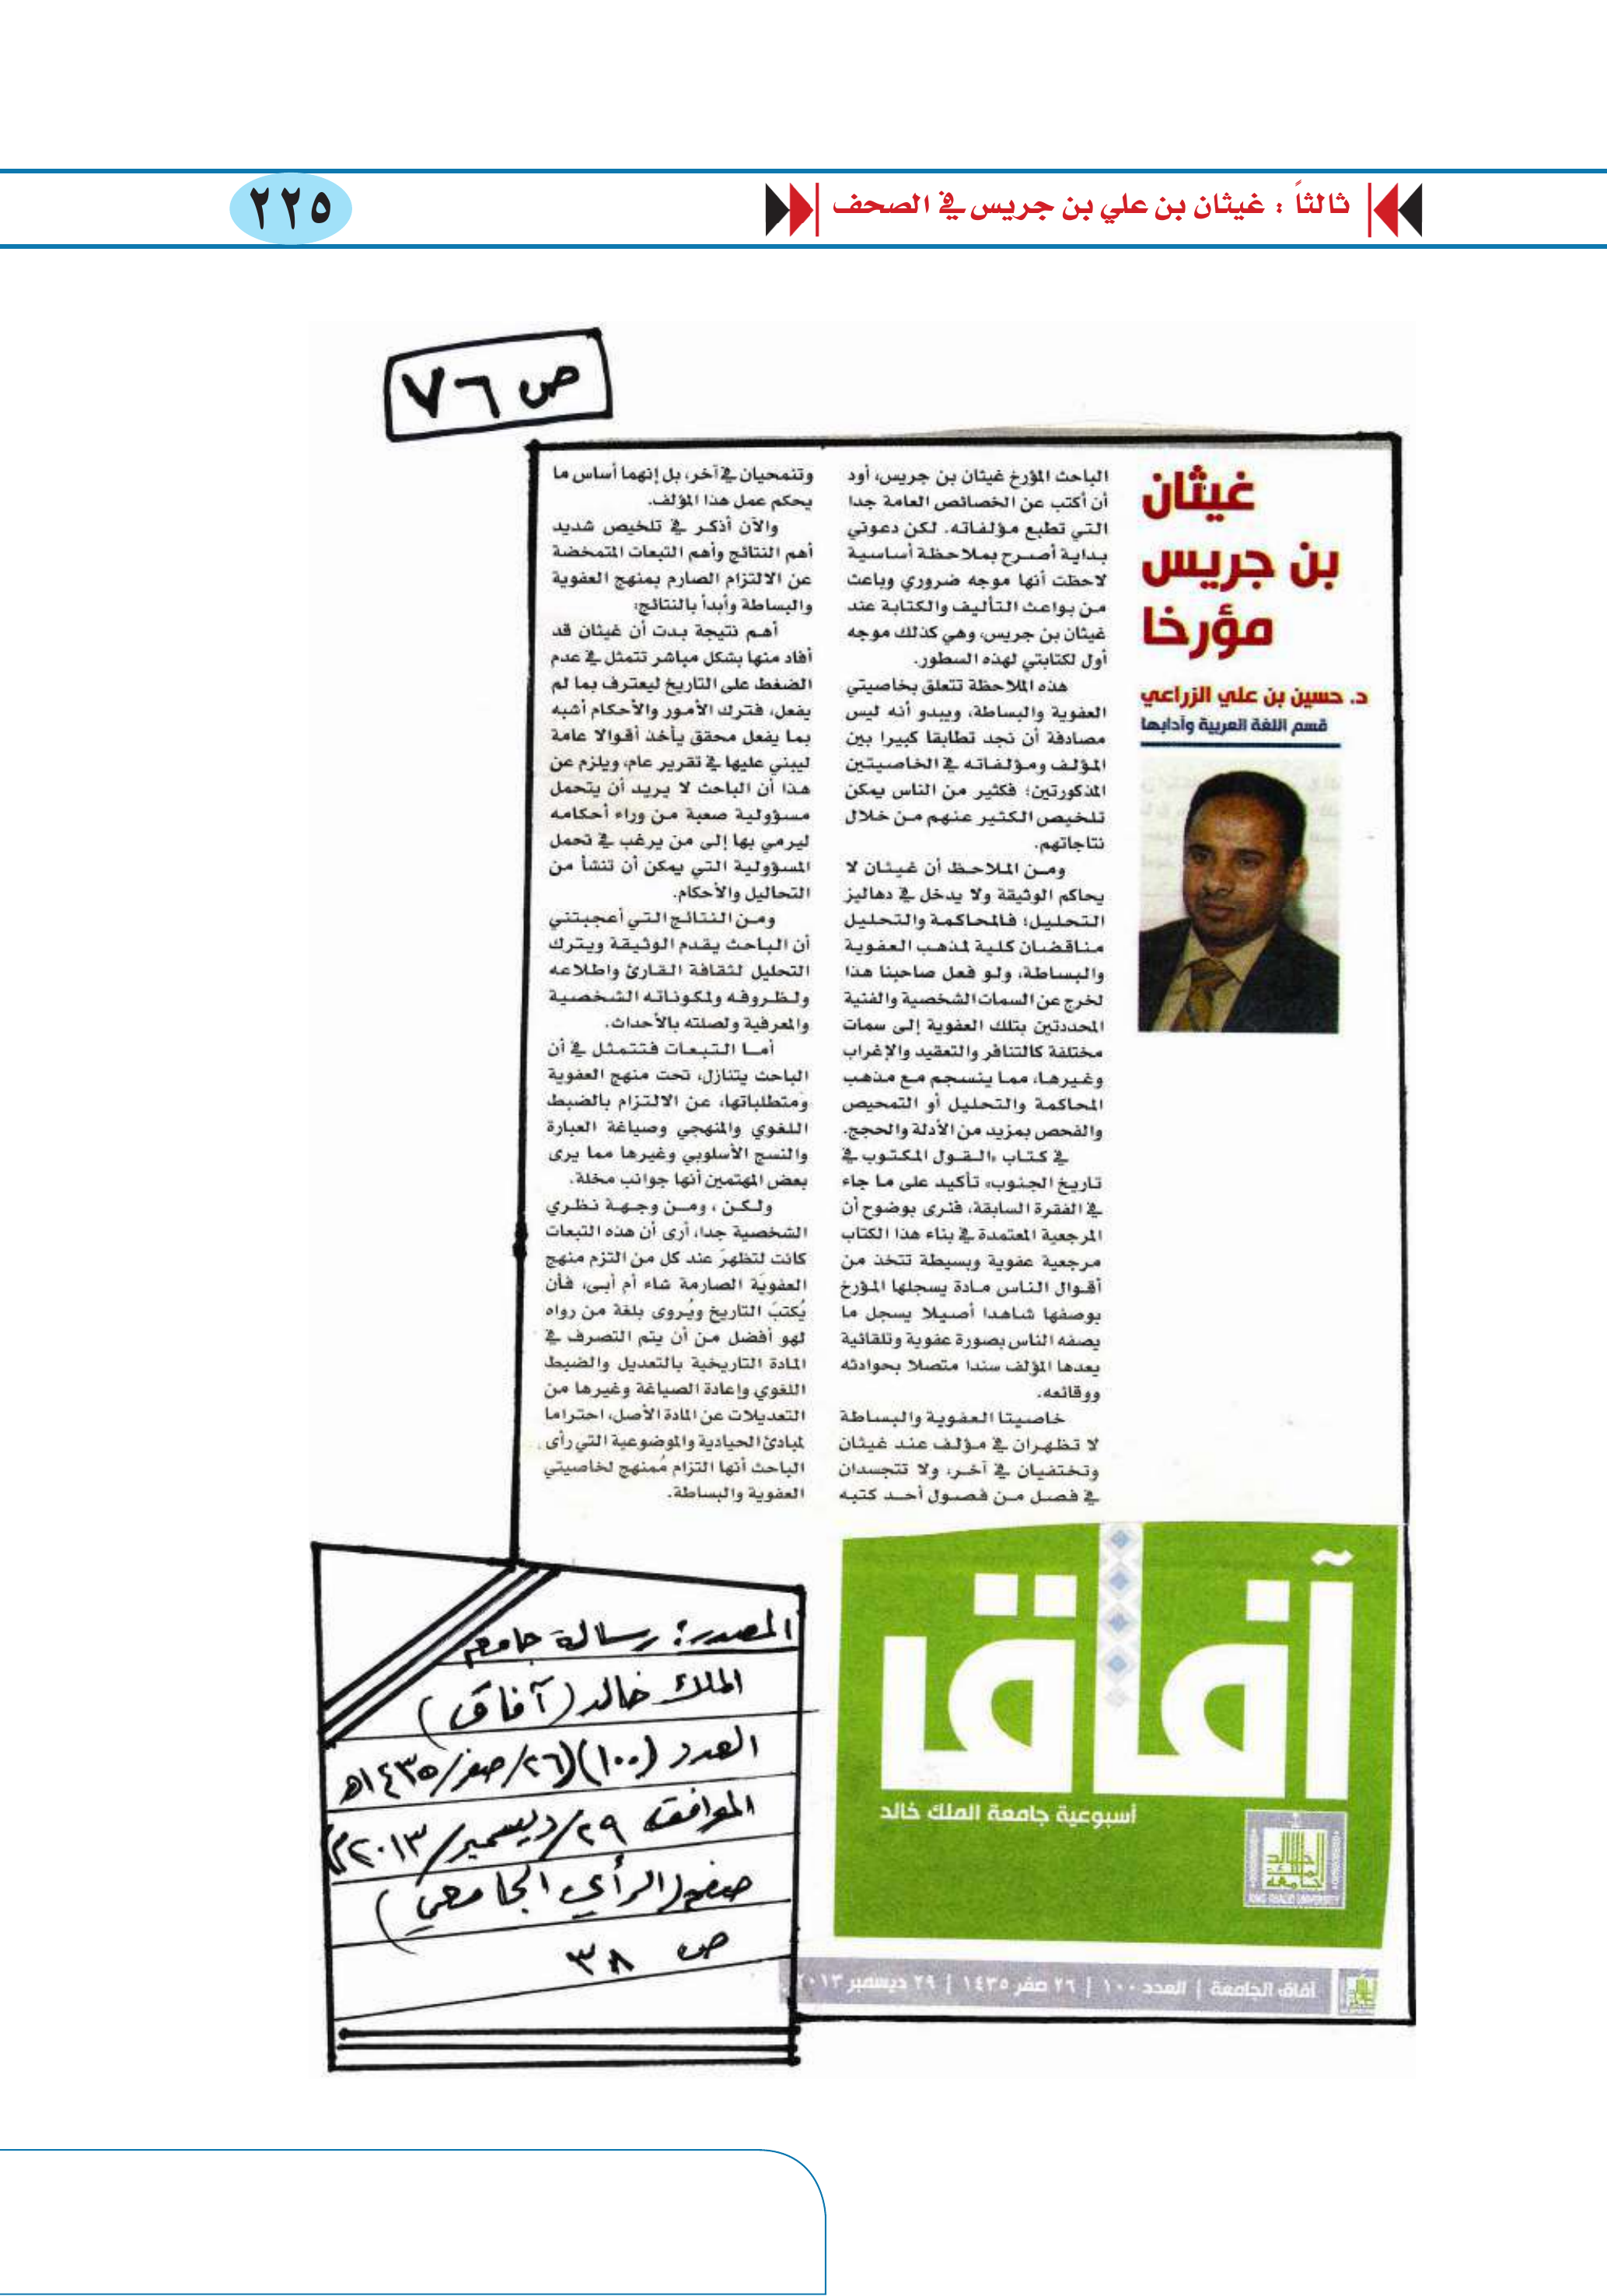 ثالثاً : غيثان بن علي بن جريس في الصحف
٢٢٥
ص ٧٦
غيثان
بن جريس
مؤرخا
د. حسين بن علي الزراعي
قسم اللغة العربية وآدابها
الباحث المؤرخ غيثان بن جريس، أود
أن أكتب عن الخصائص العامة جدا
التي تطبع مؤلفاته. لكن دعوني
بداية أصرح بملاحظة أساسية
لاحظت أنها موجه ضروري وباعث
من بواعث التأليف والكتابة عند
غيثان بن جريس، وهي كذلك موجه
أول لكتابتي لهذه السطور.
هذه الملاحظة تتعلق بخاصيتي
العفوية والبساطة، ويبدو أنه ليس
مصادفة أن نجد تطابقا كبيرا بين
المؤلف ومؤلفاته في الخاصيتين
المذكورتين؛ فكثير من الناس يمكن
تلخيص الكثير عنهم من خلال
نتاجاتهم.
ومن الملاحظ أن غيثان لا
يحاكم الوثيقة ولا يدخل في دهاليز
التحليل؛ فالمحاكمة والتحليل
مناقضان كلية لمذهب العفوية
والبساطة، ولو فعل صاحبنا هذا
لخرج عن السمات الشخصية والفنية
المحددتين بتلك العفوية إلى سمات
مختلفة كالتنافر والتعقيد والإغراب
وغيرها، مما ينسجم مع مذهب
المحاكمة والتحليل أو التمحيص
والفحص بمزيد من الأدلة والحجج.
في كتاب «القول المكتوب في
تاريخ الجنوب» تأكيد على ما جاء
في الفقرة السابقة، فنرى بوضوح أن
المرجعية المعتمدة في بناء هذا الكتاب
مرجعية عفوية وبسيطة تتخذ من
أقوال الناس مادة يسجلها المؤرخ
بوصفها شاهدا أصيلا يسجل ما
يصفه الناس بصورة عفوية وتلقائية
يعدها المؤلف سندا متصلا بحوادثه
ووقائعه.
خاصيتا العفوية والبساطة
لا تظهران في مؤلف عند غيثان
وتختفيان في آخر، ولا تتجسدان
في فصل من فصول أحد كتبه
وتنمحيان في آخر، بل إنهما أساس ما
يحكم عمل هذا المؤلف.
والآن أذكر في تلخيص شديد
أهم النتائج وأهم التبعات المتمخضة
عن الالتزام الصارم بمنهج العفوية
والبساطة وأبدأ بالنتائج:
أهم نتيجة بدت أن غيثان قد
أفاد منها بشكل مباشر تتمثل في عدم
الضغط على التاريخ ليعترف بما لم
يفعل، فترك الأمور والأحكام أشبه
بما يفعل محقق يأخذ أقوالا عامة
ليبني عليها في تقرير عام، ويلزم عن
هذا أن الباحث لا يريد أن يتحمل
مسؤولية صعبة من وراء أحكامه
ليرمي بها إلى من يرغب في تحمل
المسؤولية التي يمكن أن تنشأ من
التحاليل والأحكام.
ومن النتائج التي أعجبتني
أن الباحث يقدم الوثيقة ويترك
التحليل لثقافة القارئ واطلاعه
ولظروفه ولمكوناته الشخصية
والمعرفية ولصلته بالأحداث.
أما التبعات فتتمثل في أن
الباحث يتنازل، تحت منهج العفوية
ومتطلباتها، عن الالتزام بالضبط
اللغوي والمنهجي وصياغة العبارة
والنسج الأسلوبي وغيرها مما يرى
بعض المهتمين أنها جوانب مخلة.
ولكن ، ومن وجهة نظري
الشخصية جدا، أرى أن هذه التبعات
كانت لتظهرَ عند كل من التزم منهج
العفوية الصارمة شاء أم أبى، فأن
يُكتبَ التاريخ ويُروى بلغة من رواه
لهو أفضل من أن يتم التصرف في
المادة التاريخية بالتعديل والضبط
اللغوي وإعادة الصياغة وغيرها من
التعديلات عن المادة الأصل، احتراما
لمبادئ الحيادية والموضوعية التي رأى
الباحث أنها التزام مُمنهج لخاصيتي
العفوية والبساطة.
آفاق
أسبوعية جامعة الملك خالد
جامعة الملك خالد
KING KHALID UNIVERSITY
آفاق الجامعة | العدد ١٠٠ | ٢٦ صفر ١٤٣٥ | ٢٩ ديسمبر ٢٠١٣
المصدر: رسالة جامعة
الملك خالد (آفاق)
العدد (١٠٠) (٢٦/صفر/١٤٣٥هـ
الموافق ٢٩/ديسمبر/٢٠١٣م)
صفحة (الرأي الجامعي)
ص ٣٨